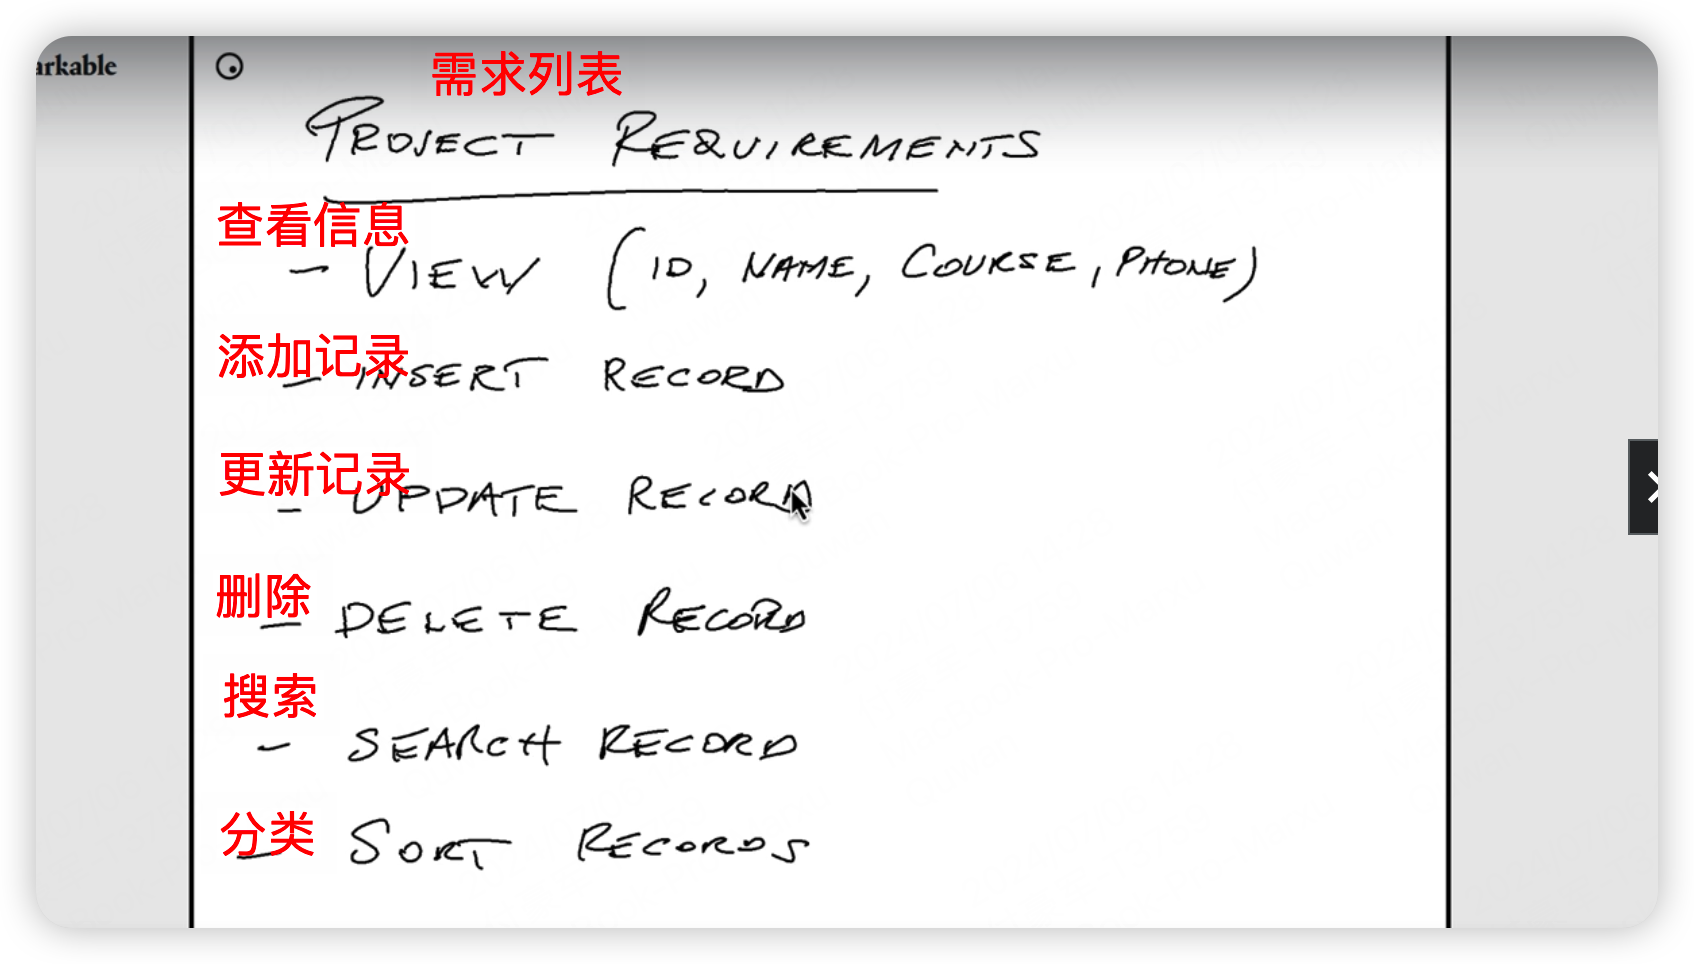 arkable
需求列表
PROJECT REQUIREMENTS
查看信息
- VIEW (ID, NAME, COURSE, PHONE)
添加记录
- INSERT RECORD
更新记录
- UPDATE RECORD
删除
- DELETE RECORD
搜索
- SEARCH RECORD
分类
- SORT RECORDS